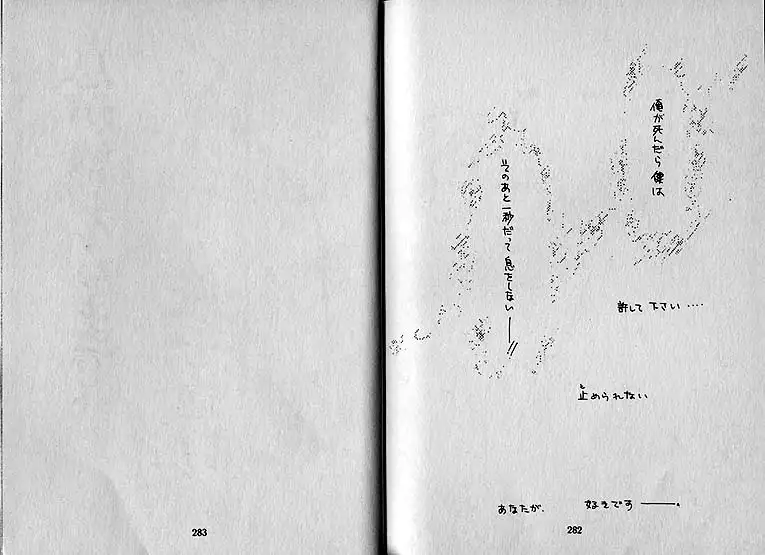 俺が死んだら僕は
そのあと一秒だって息をしない──
許して下さい‥‥
止められない
あなたが、 好きです──。
282
283